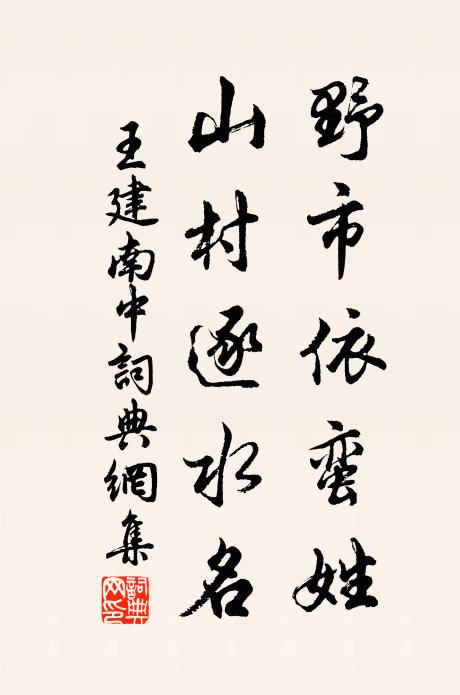 野市依蛮姓
山村逐水名
王建南中詞典網集
詞典网印